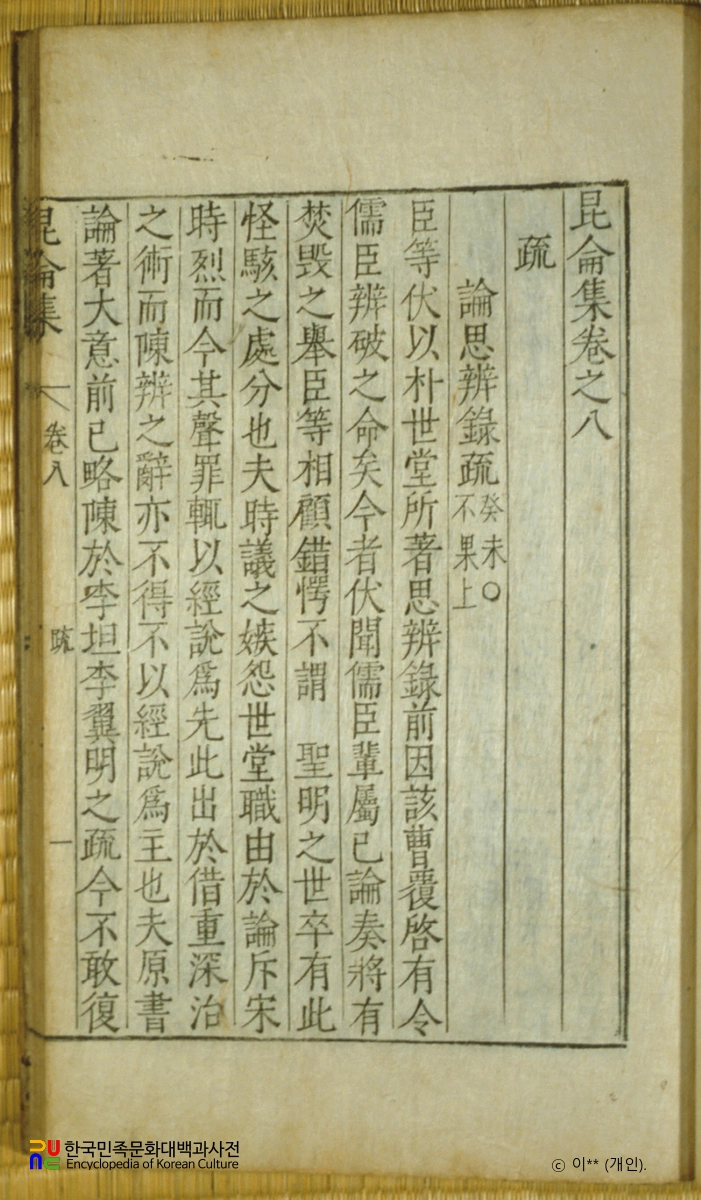 昆侖集卷之八
疏
論思辨錄疏 癸未〇不果上
臣等伏以朴世堂所著思辨錄前因該曹覆啓有令
儒臣辨破之命矣今者伏聞儒臣輩屬已論奏將有
焚毁之擧臣等相顧錯愕不謂 聖明之世卒有此
怪駭之處分也夫時議之嫉怨世堂職由於論斥宋
時烈而今其聲罪輒以經說爲先此出於借重深治
之術而陳辨之辭亦不得不以經說爲主也夫原書
論著大意前已略陳於李坦李翼明之疏今不敢復
昆侖集 卷八 疏 一
한국민족문화대백과사전
Encyclopedia of Korean Culture
ⓒ 이** (개인).